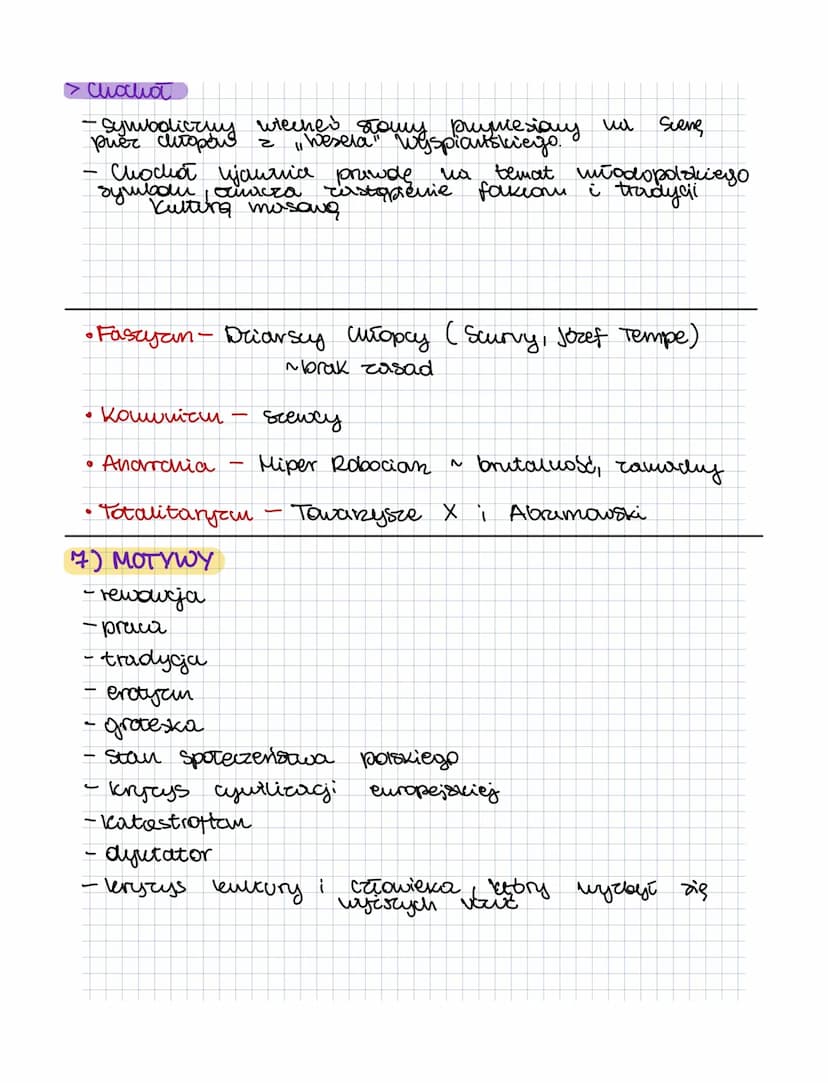 > Chochoł
- Symboliczny wiecheć słomy przyniesiony na scenę
przez chłopów z „Wesela" Wyspiańskiego.
- Chochoł ujawnia prawdę na temat młodopolskiego
symbolu, oznacza zastąpienie folkloru i tradycji
kulturą masową
• Faszyzm - Dziarscy chłopcy (Scurvy, Józef Tempe)
~ brak zasad
• Komunizm - szewcy
• Anarchia - Hiper Robociarz ~ brutalność, zamachy
• Totalitaryzm - Towarzysze X i Abramowski
7) MOTYWY
- rewolucja
- praca
- tradycja
- erotyzm
- groteska
- stan społeczeństwa polskiego
- kryzys cywilizacji europejskiej
- katastrofizm
- dyktator
- kryzys kultury i człowieka, który wyzbył się
wyższych uczuć